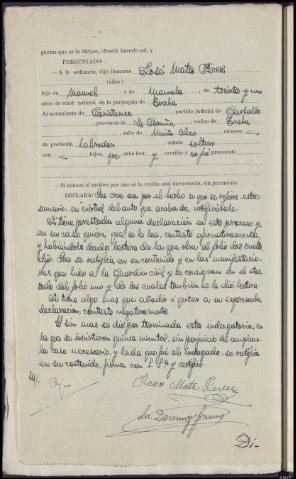 guntas que se le dirijan, ofreció hacerlo así, y
PREGUNTADO:
—A lo ordinario, dijo llamarse José Mato
(alias)
hijo de Manuel y de Manuela, de treinta y un
años de edad natural de la parroquia de Traba
Ayuntamiento de Coristanco partido judicial de Carballo
provincia de La Coruña vecino de Traba
calle de número
de profesión labrador estado soltero
con hijos, que sabe leer y escribir y no fué procesado
—Si conoce el motivo por que se le recibe esta declaración, sin juramento
DECLARA: Que cree sea por el hecho a que se refiere este
sumario, en virtud del auto que acaba de notificársele.
Si tiene prestada alguna declaración en este proceso y,
en su caso quiere que se le lea, contestó afirmativamente
y habiéndole dado lectura de la que obra al folio dos vuelto
dijo: Que se ratifica en su contenido y en las manifestacio-
nes que hizo a la Guardia civil y se consignan en el ates-
tado del folio uno y de las cuales también se le dió lectura.
Si tiene algo mas que añadir o quitar a su expresada
declaración, contestó negativamente.
Y sin mas se dió por terminada esta indagatoria, en
la que se invirtieron quince minutos, sin perjuicio de ampliar-
la caso necesario, y leida que fué al indagado, se ratifica
en su contenido, firma con S. Sª y certifico
José Mato
Domingo
Di-